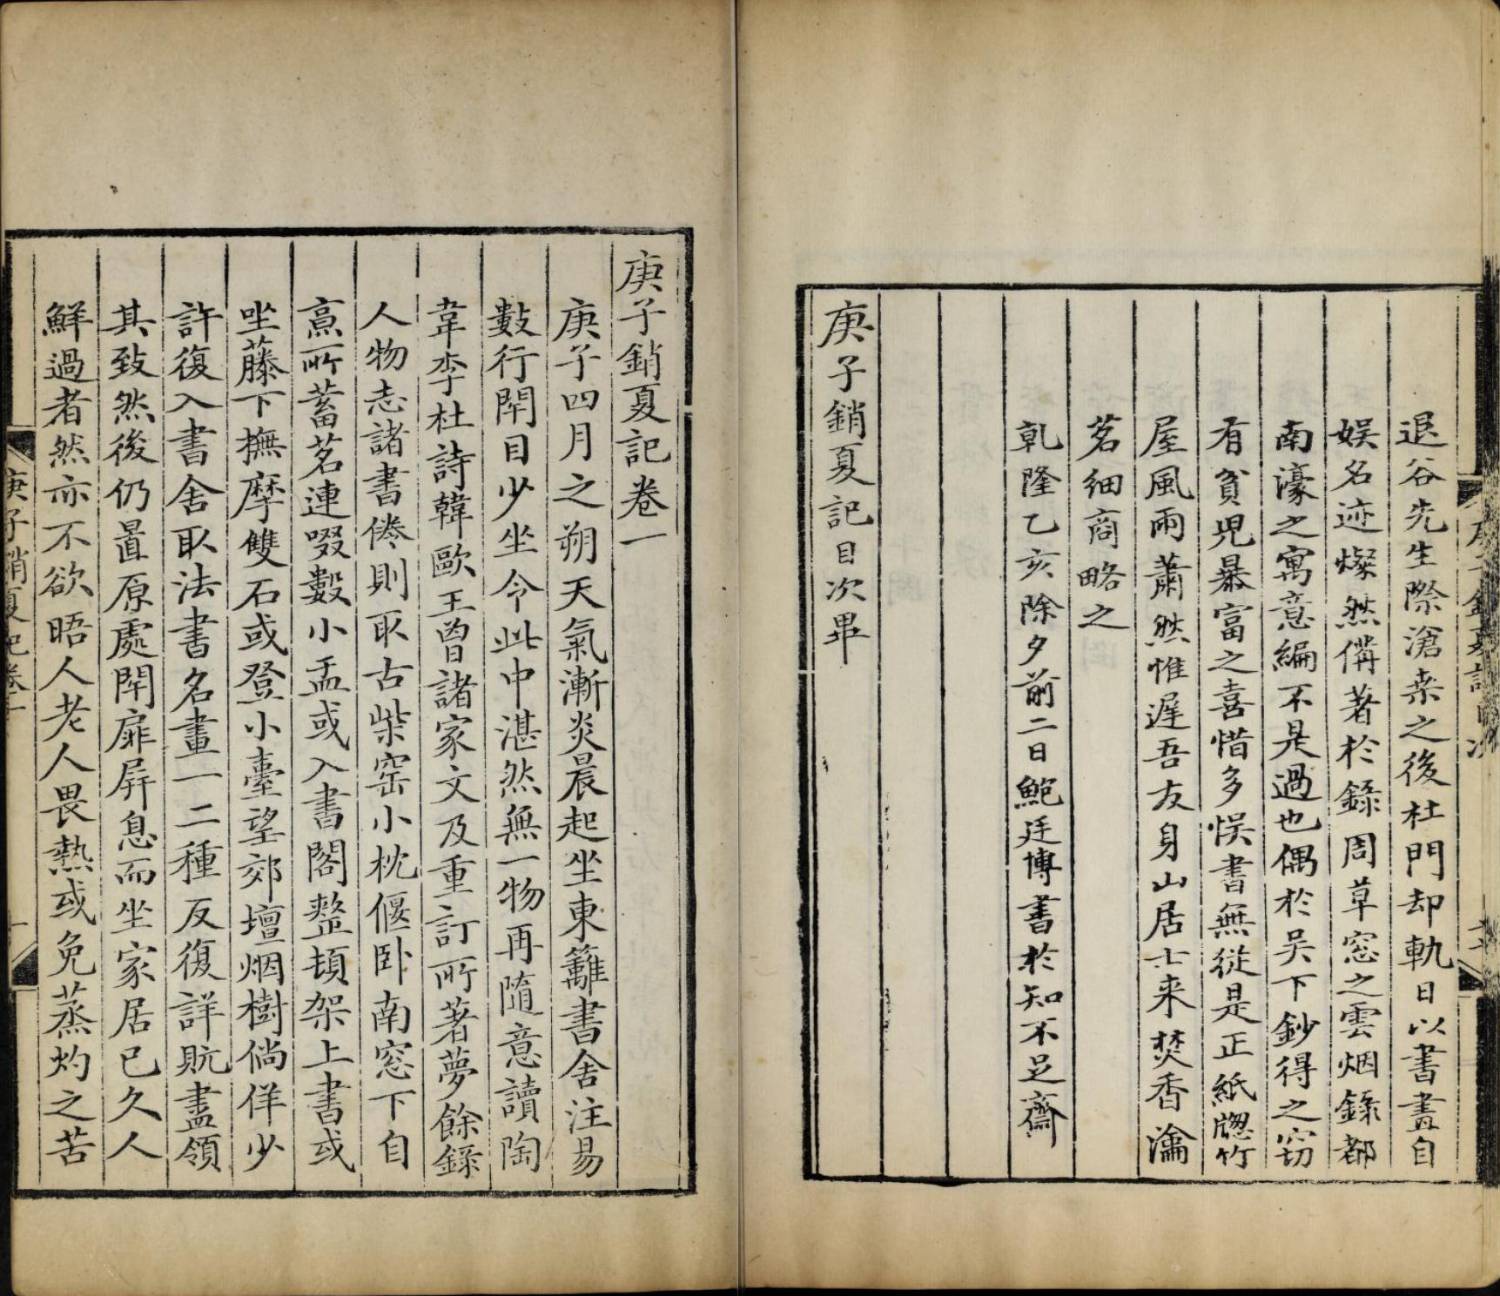 退谷先生際滄桒之後杜門却軌日以書畫自
娱名迹燦然備著於錄周草窓之雲烟錄都
南濠之寓意編不是過也偶於吴下鈔得之窃
有貧児暴富之喜惜多悮書無從是正紙牎竹
屋風雨蕭然惟遲吾友身山居士来焚香瀹
茗細商略之
乹隆乙亥除夕前二日鮑廷博書於知不足齋
庚子銷夏記目次畢
庚子銷夏記卷一
庚子四月之朔天氣漸炎晨起坐東籬書舍注易
數行閉目少坐令此中湛然無一物再隨意讀陶
韋李杜詩韓歐王曾諸家文及重訂所著夢餘錄
人物志諸書倦則取古柴窑小枕偃卧南窓下自
烹所蓄茗連啜數小盂或入書閣整頓架上書或
坐藤下撫摩雙石或登小臺望郊壇烟樹倘佯少
許復入書舍取法書名畫一二種反復詳玩盡領
其致然後仍置原處閉扉屏息而坐家居已久人
鮮過者然亦不欲晤人老人畏熱或免蒸灼之苦
庚子銷夏記卷一
一